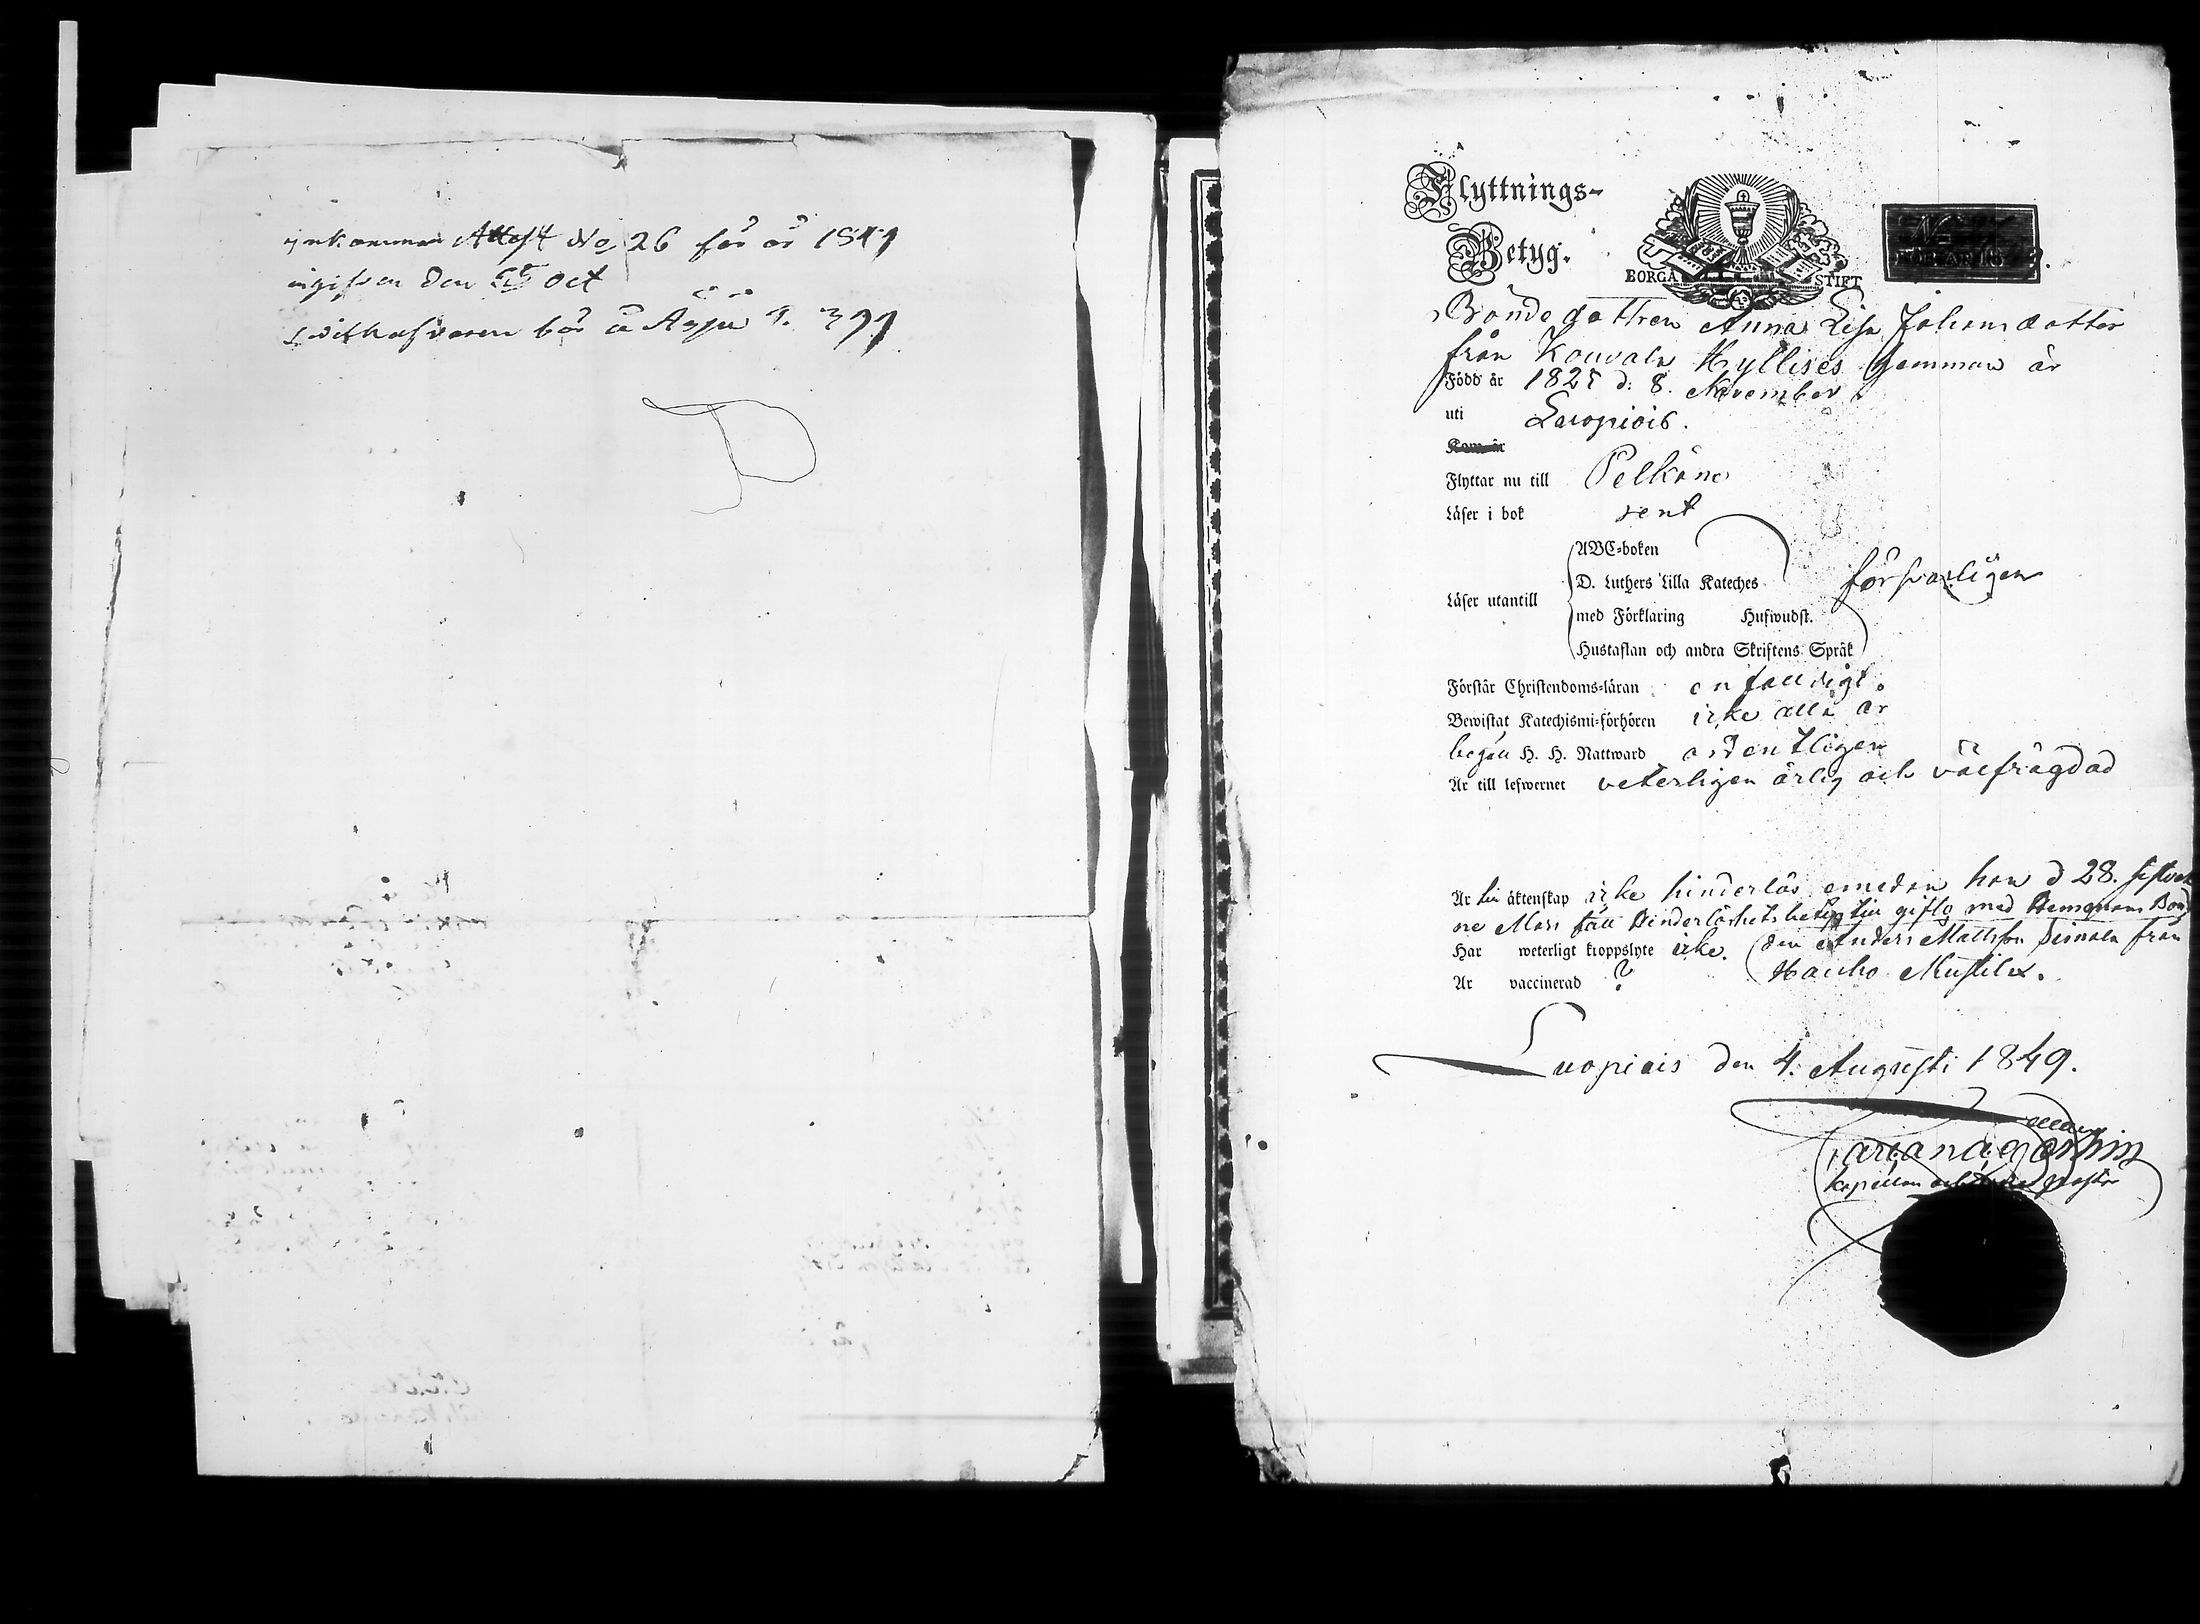 inkommen Attest No 26 för år 1849
ingifven den 5 Oct
bör å Äijju P. 377
Flyttnings-
Betyg.
BORGÅ STIFT
Bondedottren Anna Lisa Johansdotter
från Kouvala Kyllises hemman är
Född år 1825 d: 8. November
uti Luopiois.
Kom år
Flyttar nu till Pelkäne
Läser i bok rent
ABC-boken
D. Luthers Lilla Kateches
Läser utantill
med Förklaring Hufwudst.
Hustaflan och andra Skriftens Språk
försvarligen
Förstår Christendoms-läran enfaldigt.
Bewistat Katechismi-förhören icke alla år
begått H. H. Nattward ordentligen
Är till lefwernet veterligen ärlig och välfrägdad
Är till äktenskap icke hinderlös emedan hon d 28. sistvek
ne Mars fått Hinderlöshetsbetyg till gifte med Hemmans Bon
Har weterligt kroppslyte icke. den Anders Mattsson Seinola från
Är vaccinerad ? Hauho Mustila.
Luopiois den 4. Augusti 1849.
Kapellan och pastor